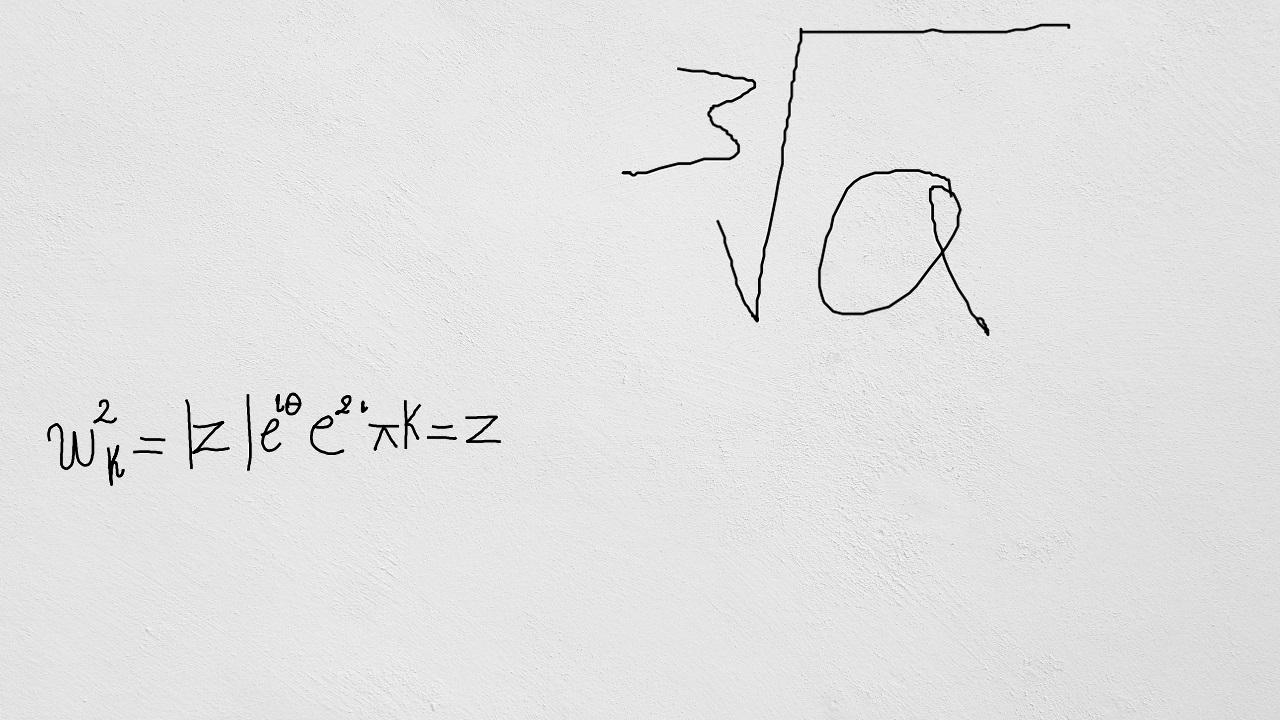 ∛a
w_k^2 = |z| e^{iθ} e^{2i} πk = z